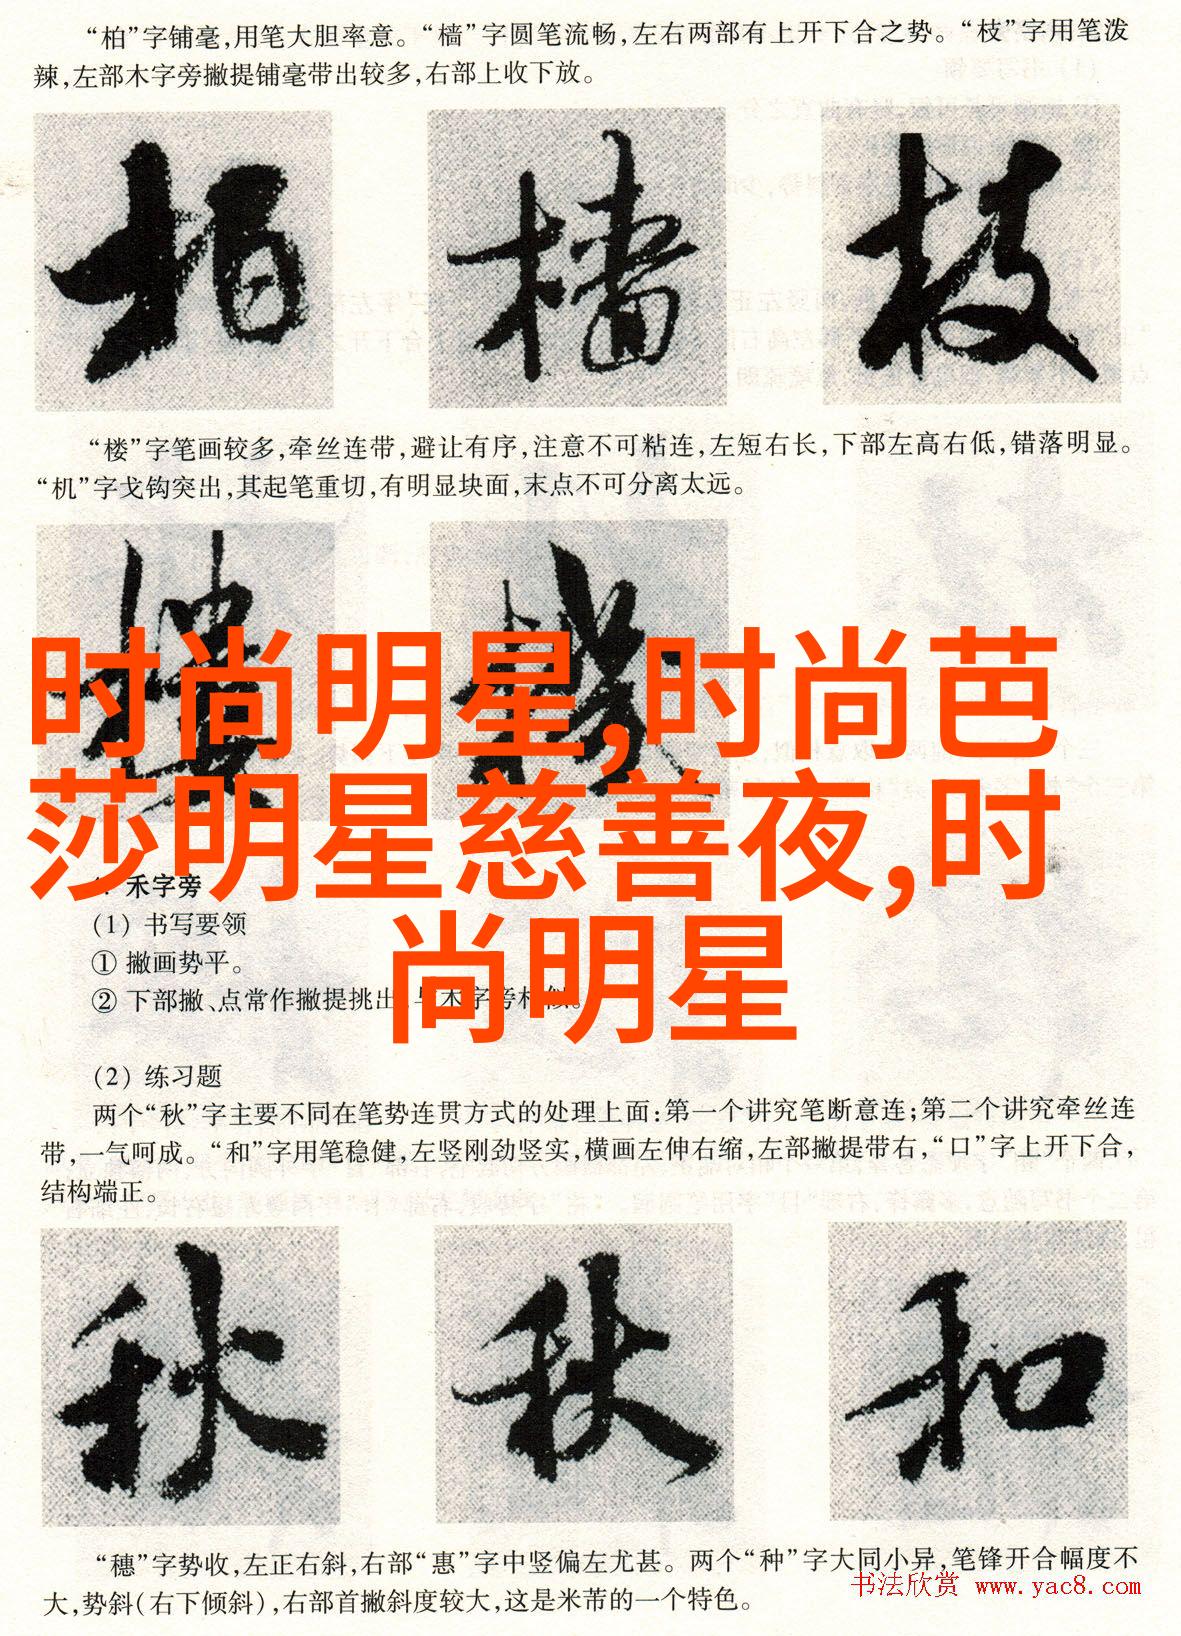 “柏”字铺毫,用笔大胆率意。“樯”字圆笔流畅,左右两部有上开下合之势。“枝”字用笔泼
辣,左部木字旁撇提铺毫带出较多,右部上收下放。
柏 樯 枝
“楼”字笔画较多,牵丝连带,避让有序,注意不可粘连,左短右长,下部左高右低,错落明显。
“机”字戈钩突出,其起笔重切,有明显块面,末点不可分离太远。
时尚明星,时尚芭
莎明星慈善夜,时
尚明星
禾字旁
(1) 书写要领
① 撇画势平。
② 下部撇、点常作撇提挑出,与木字旁相似。
(2) 练习题
两个“秋”字主要不同在笔势连贯方式的处理上面:第一个讲究笔断意连;第二个讲究牵丝连
带,一气呵成。“和”字用笔稳健,左竖刚劲竖实,横画左伸右缩,左部撇提带右,“口”字上开下合,
结构端正。
秋 秋 和
“穗”字势收,左正右斜,右部“惠”字中竖偏左尤甚。两个“种”字大同小异,笔锋开合幅度不
大,势斜(右下倾斜),右部首撇斜度较大,这是米芾的一个特色。
书法欣赏 www.yac8.com